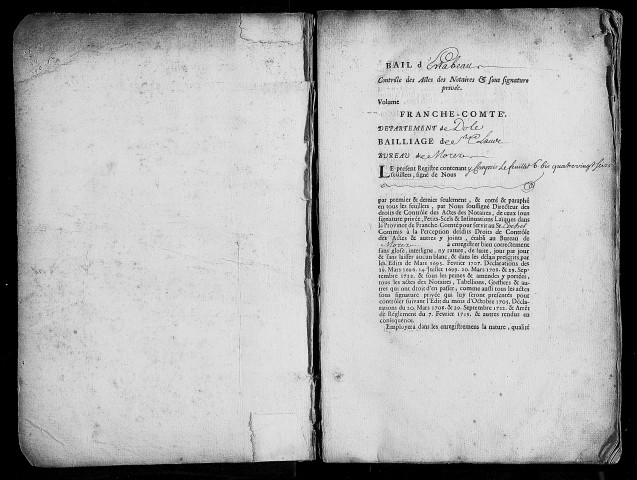 BAIL d
Contrôle des Actes des Notaires & sous signature
privée.
Volume
FRANCHE-COMTÉ.
DEPARTEMENT de Dole
BAILLIAGE de St Claude
BUREAU de Morez
LE present Registre contenant y Compris le feuillet 6 bis quatrevingt
feuillets, signé de Nous
par premier & dernier seulement, & coté & paraphé
en tous les feuillets, par Nous soussigné Directeur des
droits de Contrôle des Actes des Notaires, de ceux sous
signature privée, Petits-Scels & Insinuations Laïques dans
la Province de Franche-Comté pour servir au Sr.
Commis à la Perception desdits Droits de Contrôle
des Actes & autres y joints, établi au Bureau de
Morez à enregistrer bien correctement
sans glose, interligne, ny rature, de suite, jour par jour
& sans laisser aucun blanc, & dans les délais prescrits par
les Edits de Mars 1693. Fevrier 1707. Déclarations des
16. Mars 1696. 14. Juillet 1699. 20. Mars 1708. & 29. Sep-
tembre 1722. & sous les peines & amendes y portées,
tous les actes des Notaires, Tabellions, Greffiers & au-
tres qui ont droit d'en passer, comme aussi tous les actes
sous signature privée qui luy seront presentés pour
contrôler suivant l'Edit du mois d'Octobre 1705. Décla-
rations du 20. Mars 1708. & 29. Septembre 1722. & Arrêt
de Réglement du 7. Fevrier 1719. & autres rendus en
conséquence.
Employera dans les enregistremens la nature, qualité